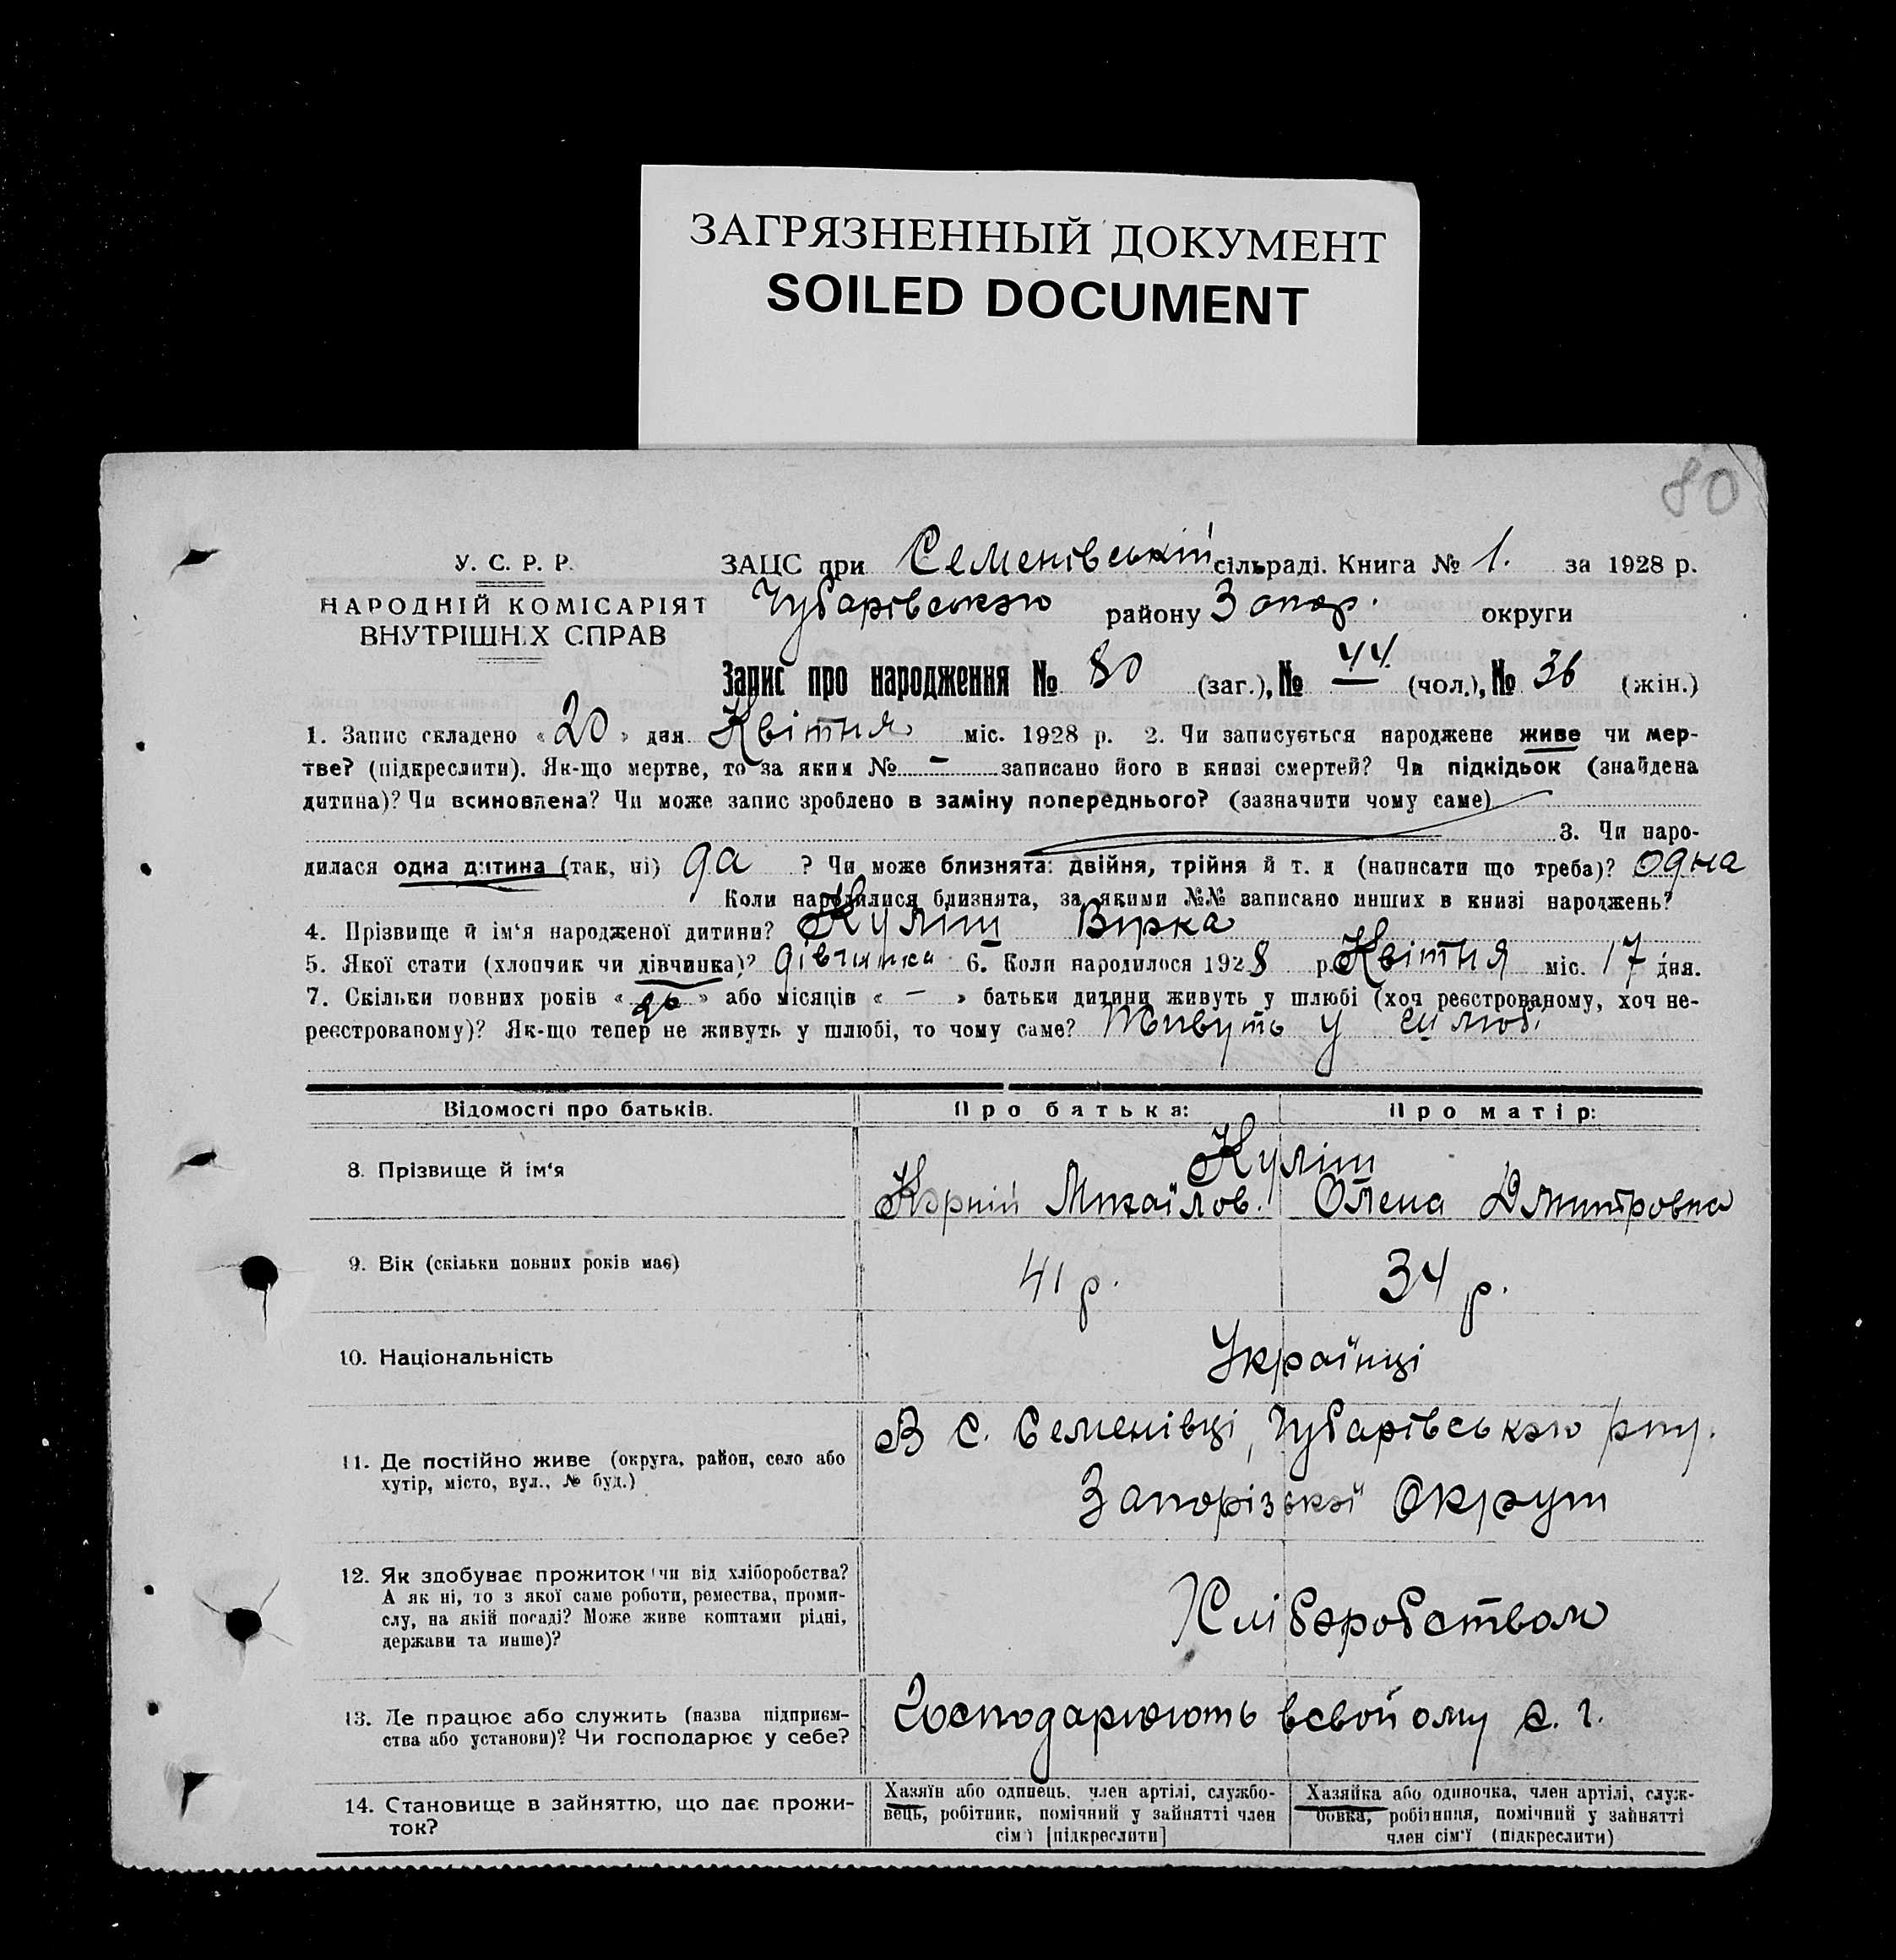 ЗАГРЯЗНЕННЫЙ ДОКУМЕНТ
SOILED DOCUMENT
80
У. С. Р. Р.
НАРОДНІЙ КОМІСАРІЯТ
ВНУТРІШНІХ СПРАВ
ЗАЦС при Семенівській сільраді. Книга № 1. за 1928 р.
Чубарівського району Запор. округи
Запис про народження № 80 (заг.), № 44 — (чол.), № 36 (жін.)
1. Запис складено «20» дня Квітня міс. 1928 р. 2. Чи записується народжене живе чи мер-
тве? (підкреслити). Як-що мертве, то за яким № – записано його в книзі смертей? Чи підкідьок (знайдена
дитина)? Чи всиновлена? Чи може запис зроблено в заміну попереднього? (зазначити чому саме)
3. Чи наро-
дилася одна дитина (так, ні) да ? Чи може близнята: двійня, трійня й т. д (написати що треба)? одна
Коли народилися близнята, за якими №№ записано инших в книзі народжень?
4. Прізвище й ім‘я народженої дитини? Куліш Вірка
5. Якої стати (хлопчик чи дівчинка)? дівчинка 6. Коли народилося 1928 р. Квітня міс. 17 дня.
7. Скільки повних років « » або місяців « – » батьки дитини живуть у шлюбі (хоч реєстрованому, хоч не-
реєстрованому)? Як-що тепер не живуть у шлюбі, то чому саме? Живуть у шлюбі
Відомості про батьків.
Про батька:
Про матір:
8. Прізвище й ім‘я
Куліш
Корній Михайлов.
Олена Дмитровна
9. Вік (скільки повних років має)
41 р.
34 р.
10. Національність
Українці
11. Де постійно живе (округа, район, село або
хутір, місто, вул., № буд.)
В С. Семенівці, Чубарівського рну.
Запорізької Округи
12. Як здобуває прожиток (чи від хліборобства?
А як ні, то з якої саме роботи, ремества, проми-
слу, на якій посаді? Може живе коштами рідні,
держави та инше)?
Хліборобством
13. Де працює або служить (назва підприєм-
ства або установи)? Чи господарює у себе?
Господарюють всвойому с. г.
14. Становище в зайняттю, що дає прожи-
ток?
Хазяїн або одинець, член артілі, службо-
вець, робітник, помічний у зайнятті член
сім‘ї [підкреслити]
Хазяйка або одиночка, член артілі, служ-
бовка, робітниця, помічний у зайнятті
член сім‘ї (підкреслити)